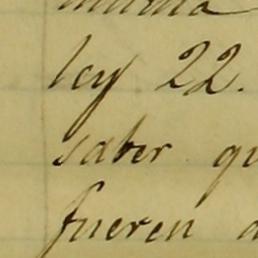 ley 22.
saber qu
fueren